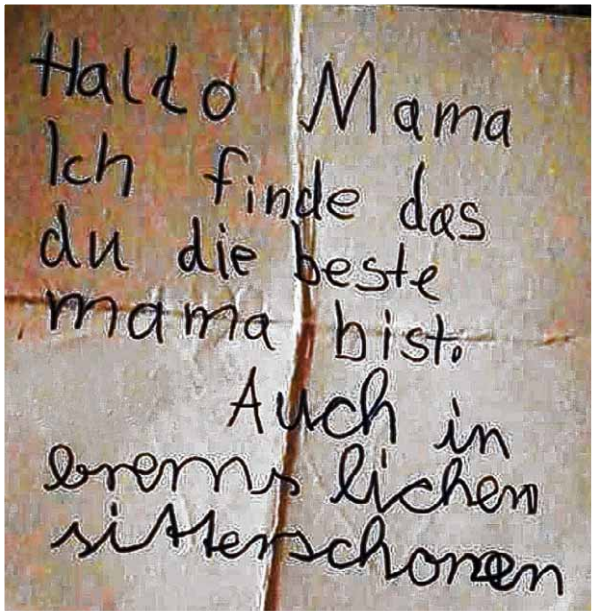 Hallo Mama
Ich finde das
du die beste
mama bist.
Auch in
brems lichen
sitterschonen